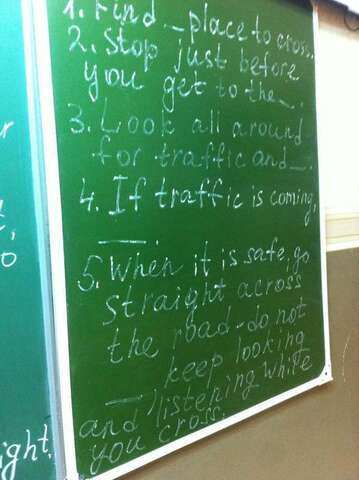 1. Find _ place to cross.
2. Stop just before
you get to the _.
3. Look all around
for traffic and _.
4. If traffic is coming,
_.
5. When it is safe, go
straight across
the road - do not
_ keep looking
and listening while
you cross.
ight.